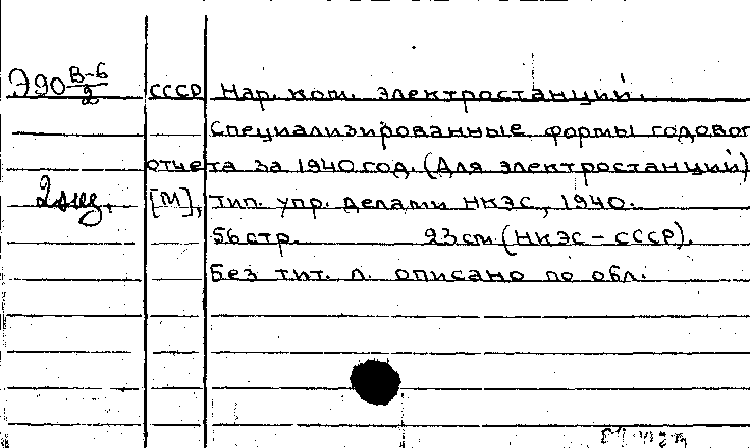 Э90 В-6/2 СССР Нар. ком. электростанций.
Специализированные формы годовог
отчета за 1940 год. (Для электростанций)
2 экз. [М], тип. упр. делами НКЭС, 1940.
56 стр. 23 см (НКЭС – СССР).
Без тит. л. описано по обл.